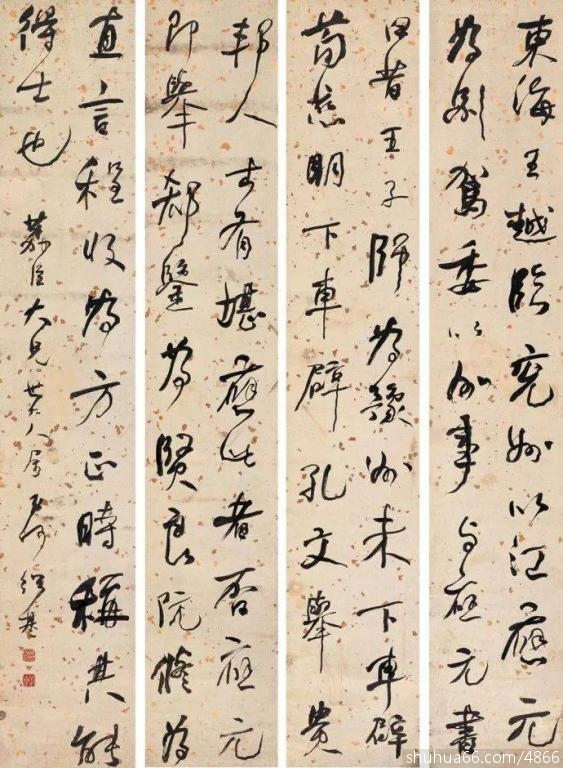 東海王越臨兗州以江應元
為別駕委以州事与應元書
曰昔王子師為豫州未下車辟
荀慈明下車辟孔文舉貴
邦人士有堪應此者否應元
即舉郗鑒為賢良阮修為
直言程收為方正時稱其能
得士也
臣大兄大人屬 何紹基
shuhua66.com/4866